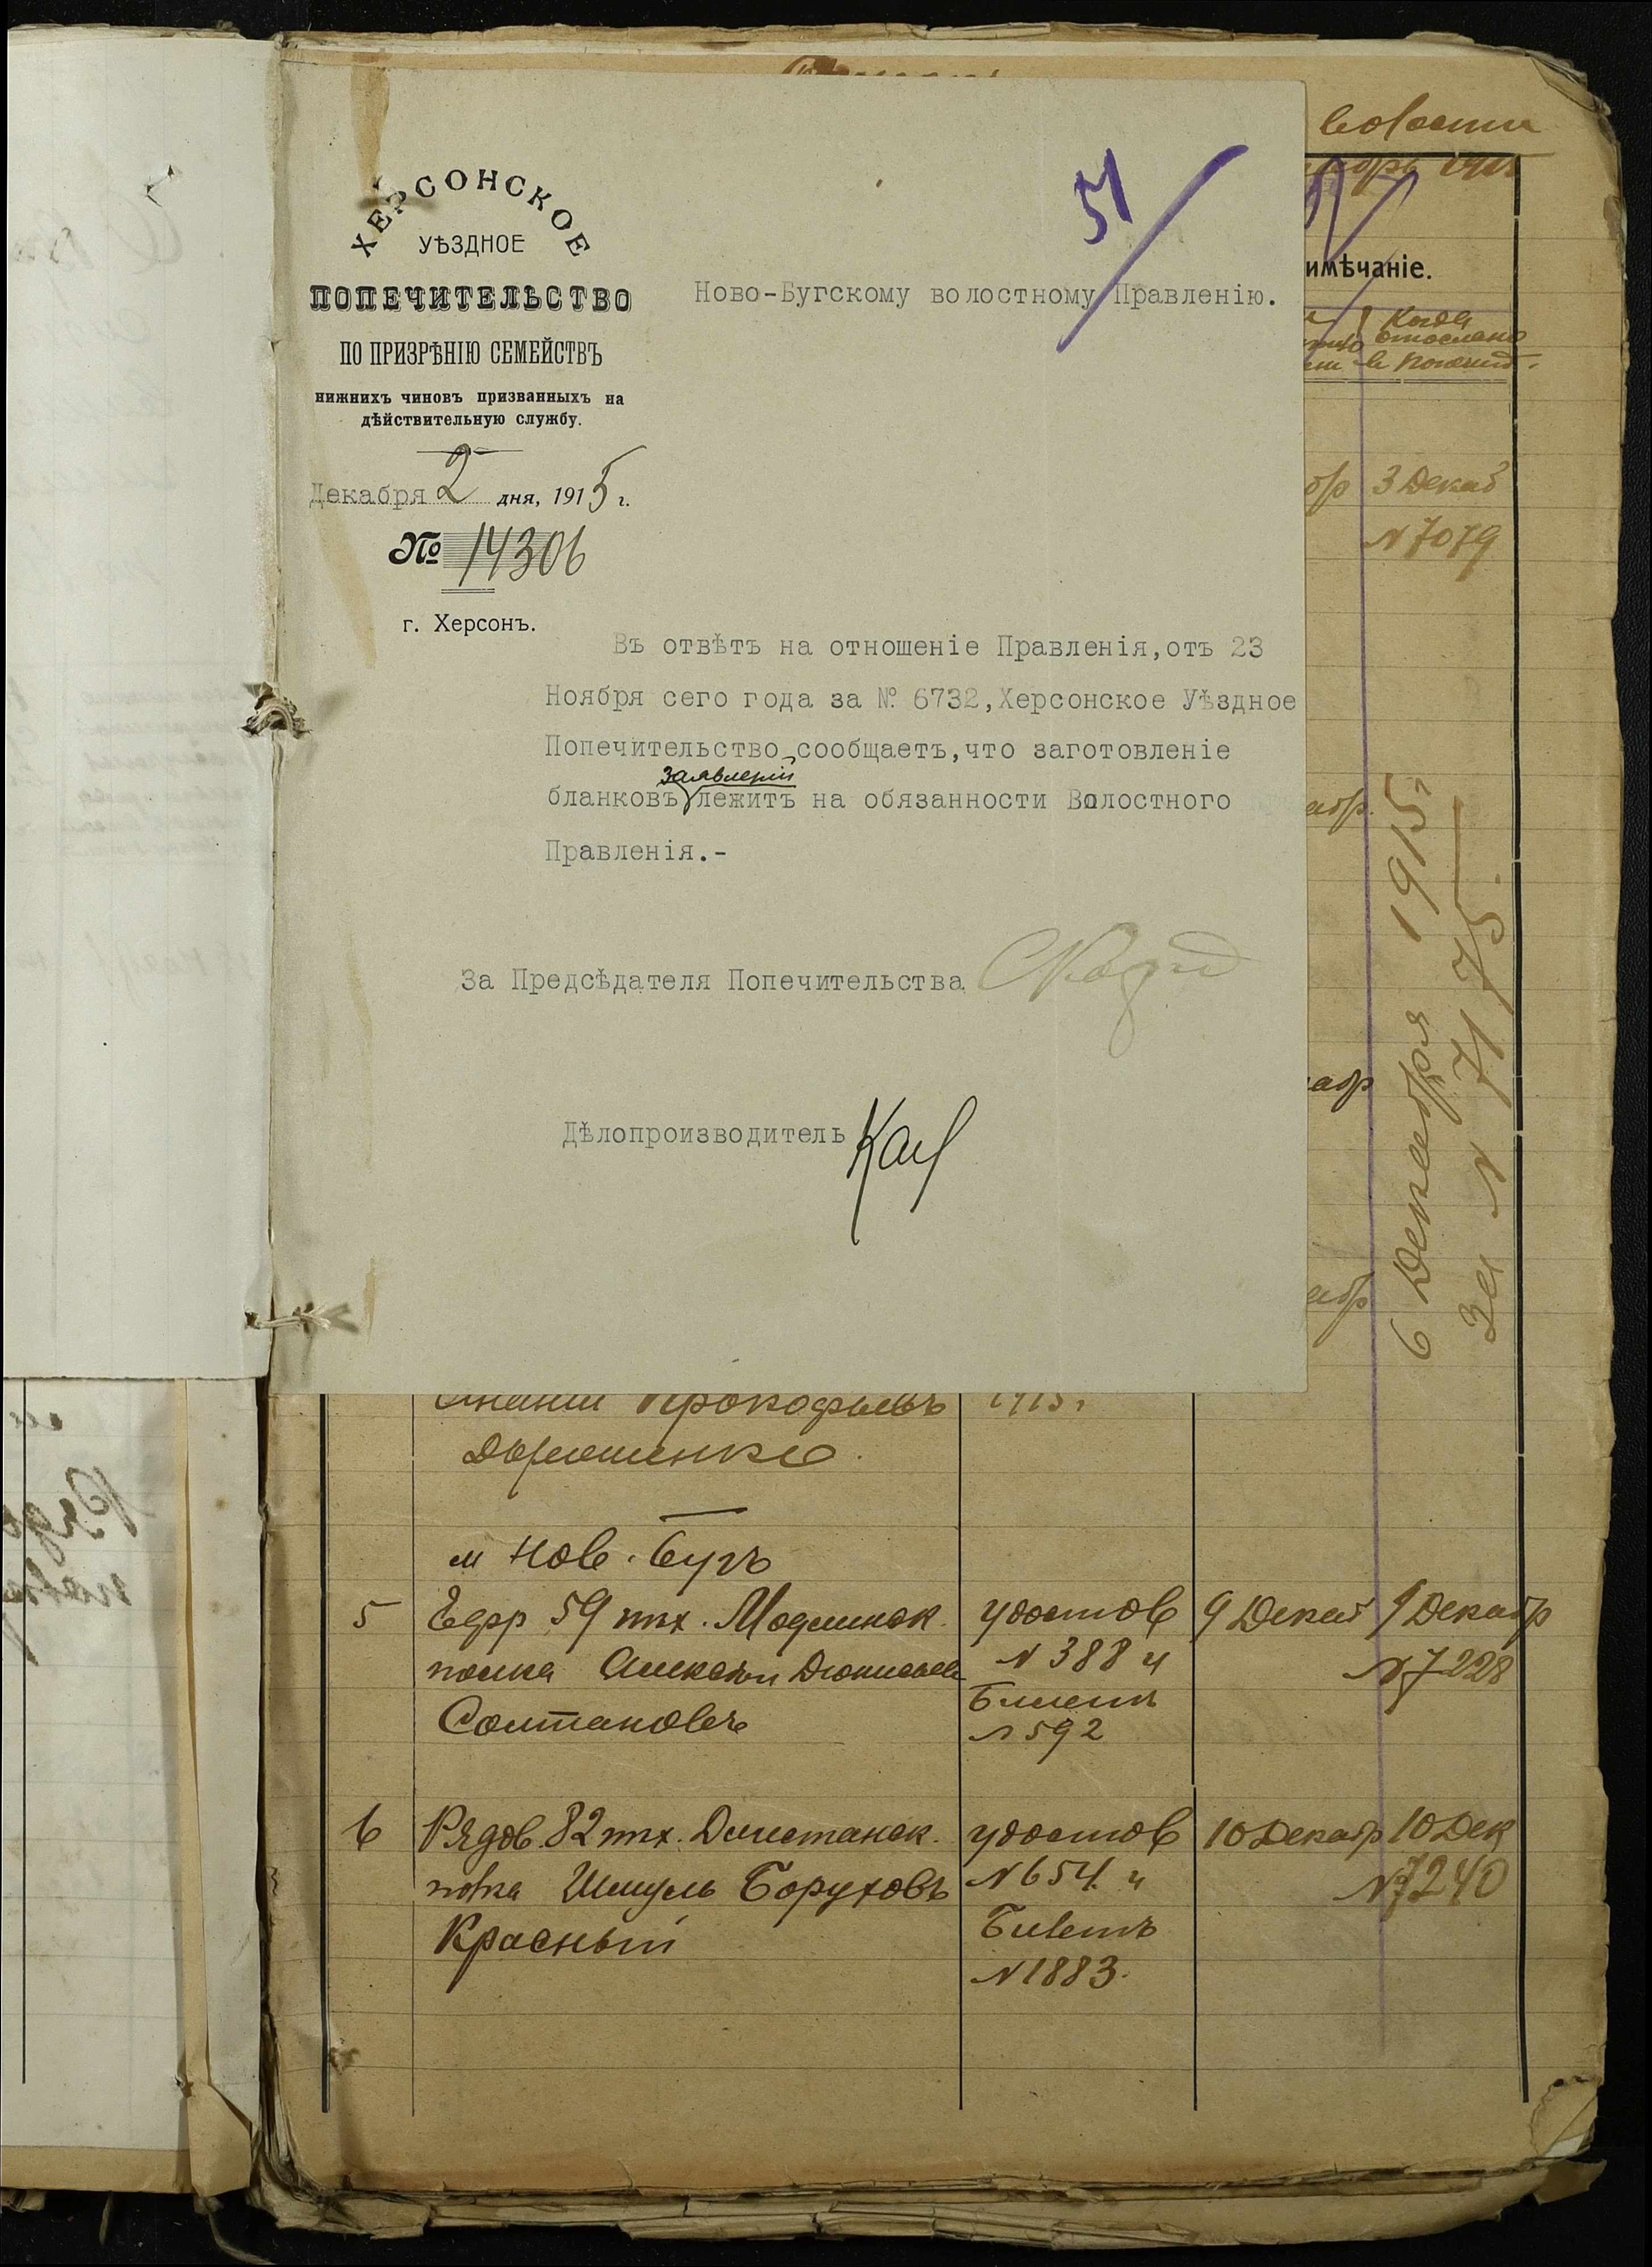 ХЕРСОНСКОЕ
УѢЗДНОЕ
ПОПЕЧИТЕЛЬСТВО
ПО ПРИЗРѢНІЮ СЕМЕЙСТВЪ
нижнихъ чиновъ призванныхъ на
дѣйствительную службу.
Декабря 2 дня, 1915 г.
№ 14306
г. Херсонъ.
51
Ново-Бугскому волостному Правленію.
Въ отвѣтъ на отношеніе Правленія,отъ 23
Ноября сего года за № 6732,Херсонское Уѣздное
Попечительство сообщаетъ,что заготовленіе
заявленій
бланковъ лежитъ на обязанности Волостного
Правленія.-
За Предсѣдателя Попечительства
Дѣлопроизводитель
волости
1915
имѣчаніе.
Когда
отослано
3 Декаб
№ 7079
6 Декабря 1915 г
За № 7175.
Прокофьевъ 1915 г
Дорошенко.
м Нов. Бугъ
5 Ефр 59 пех. Модлинск. удостов 9 Декаб 9 Декабр
полка Алексей Дионисьев № 388 и № 7228
Солтановъ Билетъ
№ 592
6 Рядов. 82 пех. Дагестанск. удостов 10 Декабр 10 Дек
полка Шмуль Боруховъ № 654. и № 7240
Красный Билетъ
№ 1883.